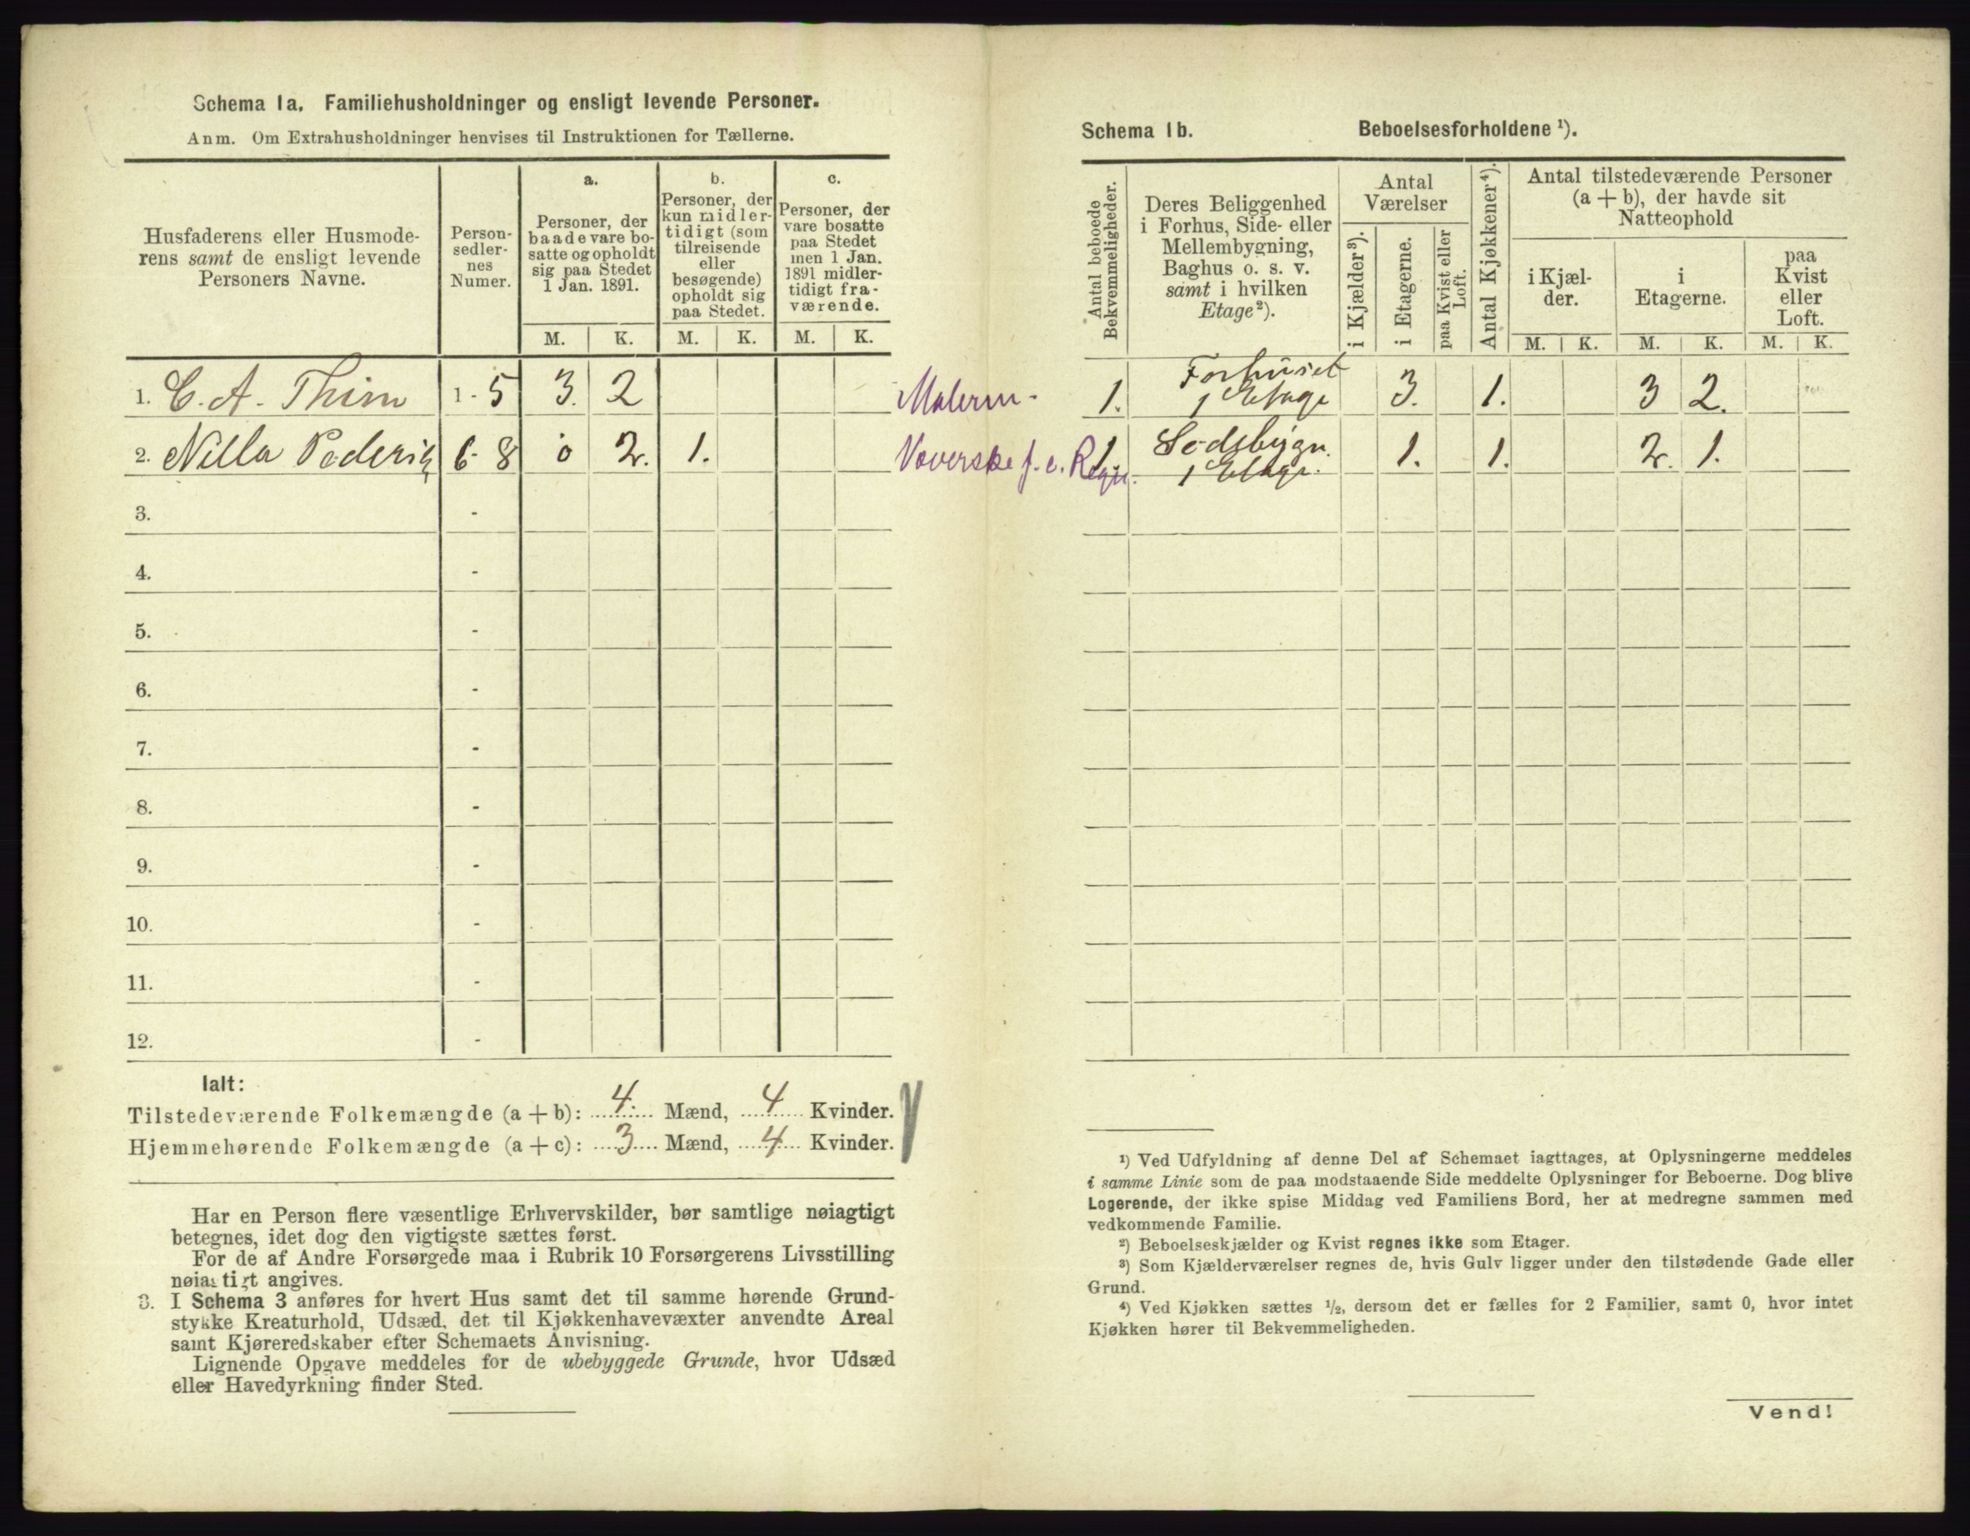 Schema 1a. Familiehusholdninger og ensligt levende Personer.
Anm. Om Extrahusholdninger henvises til Instruktionen for Tællerne.
Husfaderens eller Husmode-
rens samt de ensligt levende
Personers Navne.
Person-
sedler-
nes
Numer.
a.
Personer, der
baade vare bo-
satte og opholdt
sig paa Stedet
1 Jan. 1891.
b.
Personer, der
kun midler-
tidigt (som
tilreisende
eller
besøgende)
opholdt sig
paa Stedet.
c.
Personer, der
vare bosatte
paa Stedet
men 1 Jan.
1891 midler-
tidigt fra-
værende.
M. K. M. K. M. K.
1. C. A. Thim 1 - 5 3. 2
2. Nilla Pederik 6 - 8 0 2. 1.
3. -
4. -
5. -
6. -
7. -
8. -
9. -
10. -
11. -
12. -
Ialt:
Tilstedeværende Folkemængde (a + b): 4. Mænd, 4 Kvinder.
Hjemmehørende Folkemængde (a + c): 3 Mænd, 4 Kvinder.
Har en Person flere væsentlige Erhvervskilder, bør samtlige nøiagtigt
betegnes, idet dog den vigtigste sættes først.
For de af Andre Forsørgede maa i Rubrik 10 Forsørgerens Livsstilling
nøiagtigt angives.
3. I Schema 3 anføres for hvert Hus samt det til samme hørende Grund-
stykke Kreaturhold, Udsæd, det til Kjøkkenhavevæxter anvendte Areal
samt Kjøreredskaber efter Schemaets Anvisning.
Lignende Opgave meddeles for de ubebyggede Grunde, hvor Udsæd
eller Havedyrkning finder Sted.
Schema 1b. Beboelsesforholdene ¹).
Antal beboede
Bekvemmeligheder.
Deres Beliggenhed
i Forhus, Side- eller
Mellembygning,
Baghus o. s. v.
samt i hvilken
Etage²).
Antal
Værelser
i Kjælder³).
i Etagerne.
paa Kvist eller
Loft.
Antal Kjøkkener⁴).
Antal tilstedeværende Personer
(a + b), der havde sit
Natteophold
i Kjæl-
der.
i
Etagerne.
paa
Kvist
eller
Loft.
M. K. M. K. M. K.
Malerm. 1. Forhuset
1 Etage 3. 1. 3 2.
Væverske f. e. Regn. 1. Sidsbygn.
1 Etage. 1. 1. 2. 1.
¹) Ved Udfyldning af denne Del af Schemaet iagttages, at Oplysningerne meddeles
i samme Linie som de paa modstaaende Side meddelte Oplysninger for Beboerne. Dog blive
Logerende, der ikke spise Middag ved Familiens Bord, her at medregne sammen med
vedkommende Familie.
²) Beboelseskjælder og Kvist regnes ikke som Etager.
³) Som Kjælderværelser regnes de, hvis Gulv ligger under den tilstødende Gade eller
Grund.
⁴) Ved Kjøkken sættes ½, dersom det er fælles for 2 Familier, samt 0, hvor intet
Kjøkken hører til Bekvemmeligheden.
Vend!